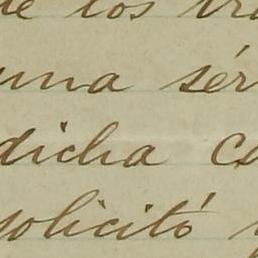 de los tra
una sér
dicha co
solicitó y